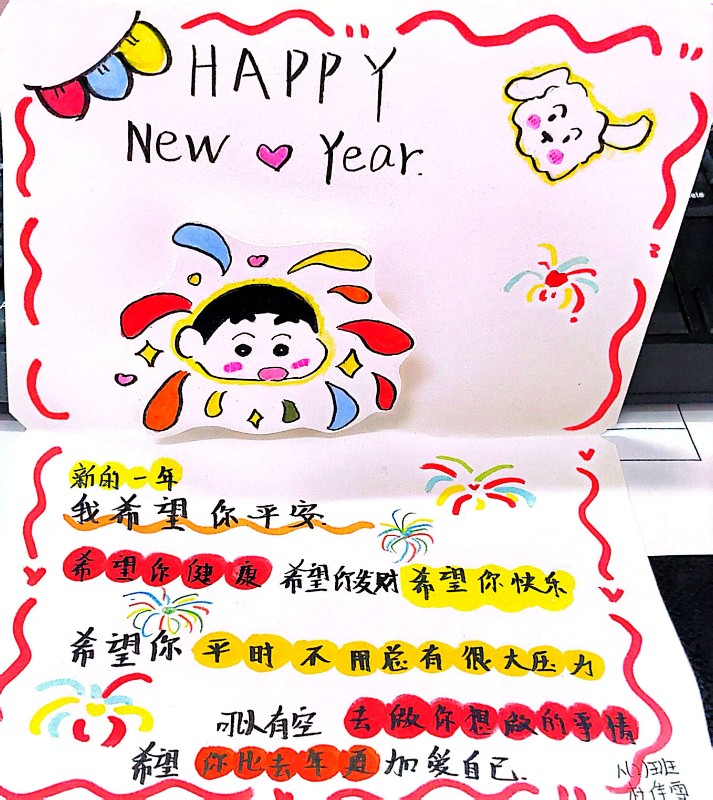 HAPPY
New Year.
新的一年
我希望你平安.
希望你健康 希望你发财 希望你快乐
希望你平时不用总有很大压力
可以有空 去做你想做的事情
希望 你比去年更加爱自己.